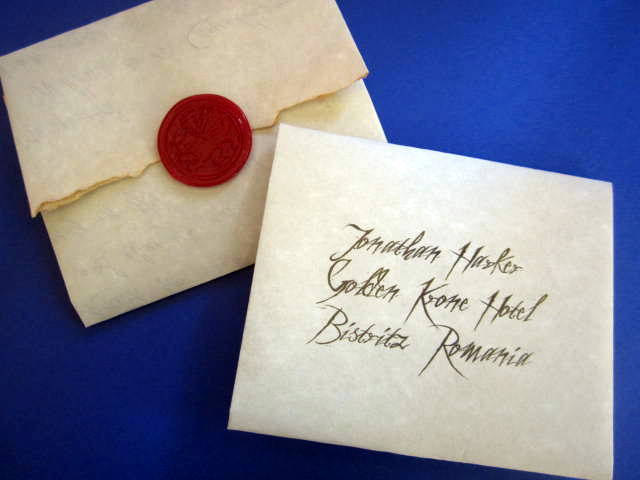 Jonathan Harker
Golden Krone Hotel
Bistritz Romania